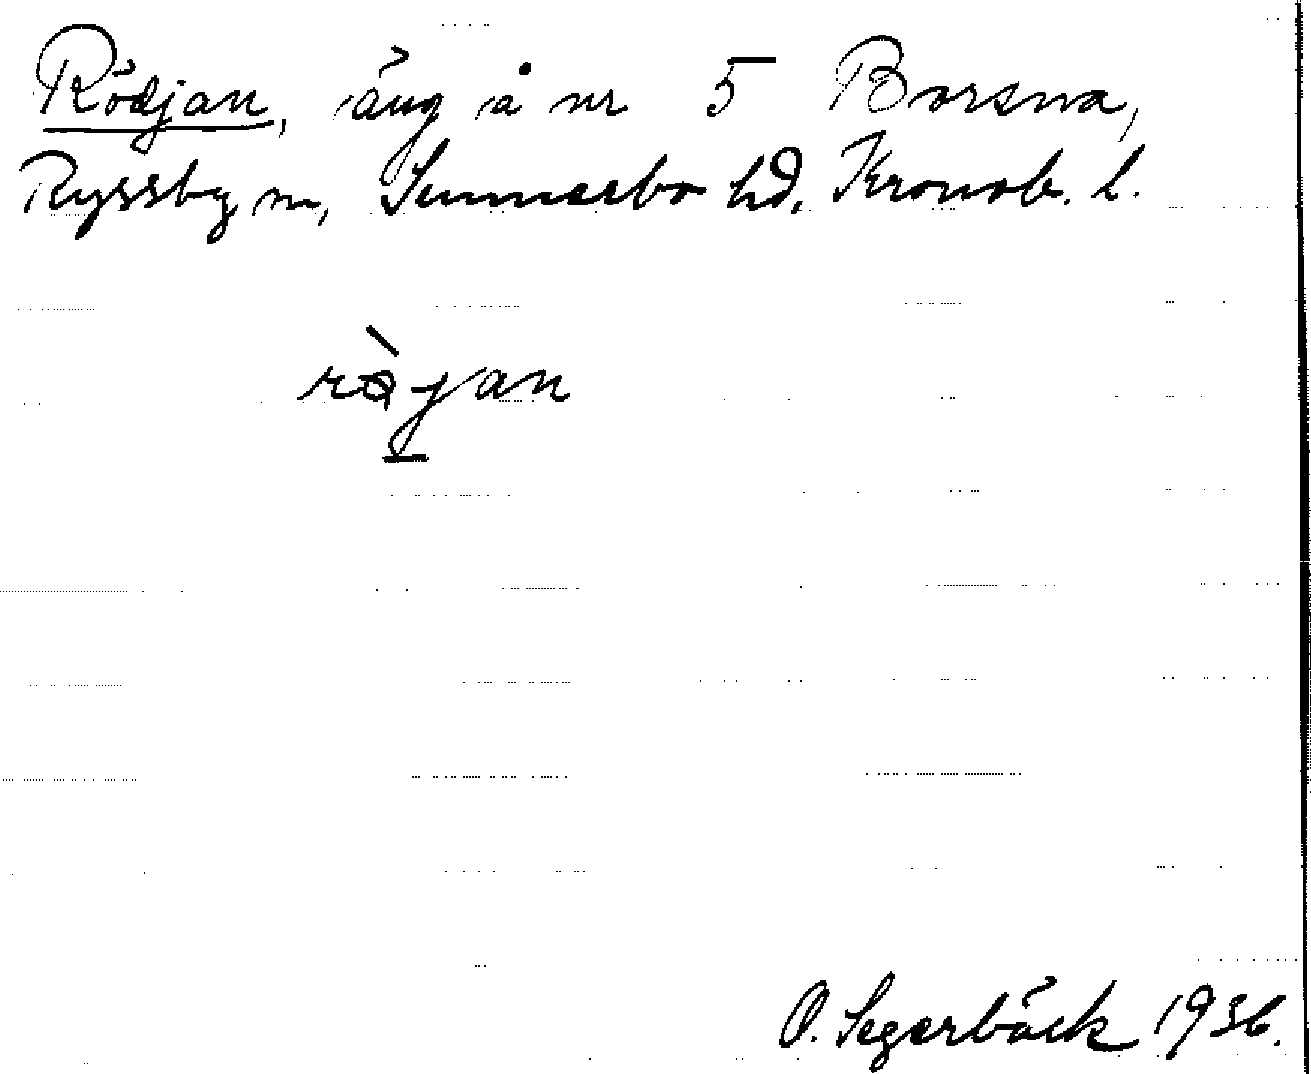 Rödjan, äng å nr 5 Borsna,
Ryssby sn, Sunnerbo hd, Kronob. l.
rø̀jan
O. Segerbäck 1936.